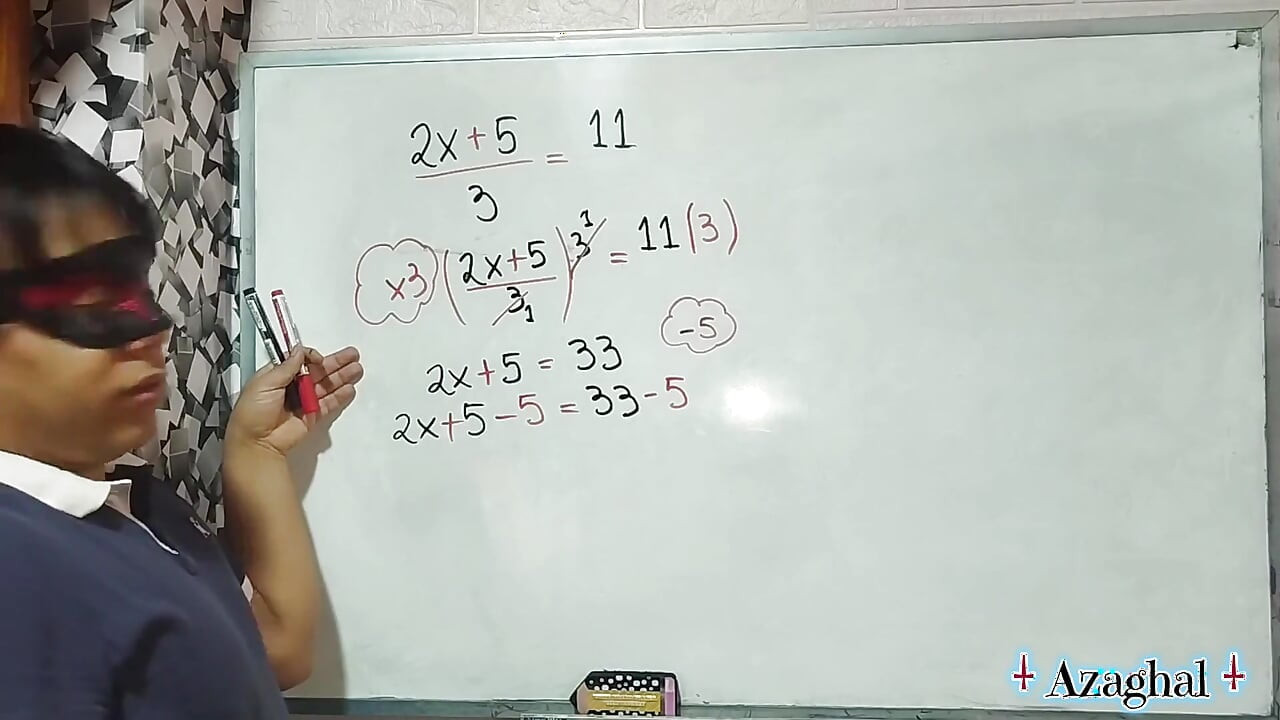 2x+5
3
= 11
x3 (2x+5 / 3 1) 3 1 = 11(3)
-5
2x+5 = 33
2x+5-5 = 33-5
Azaghal